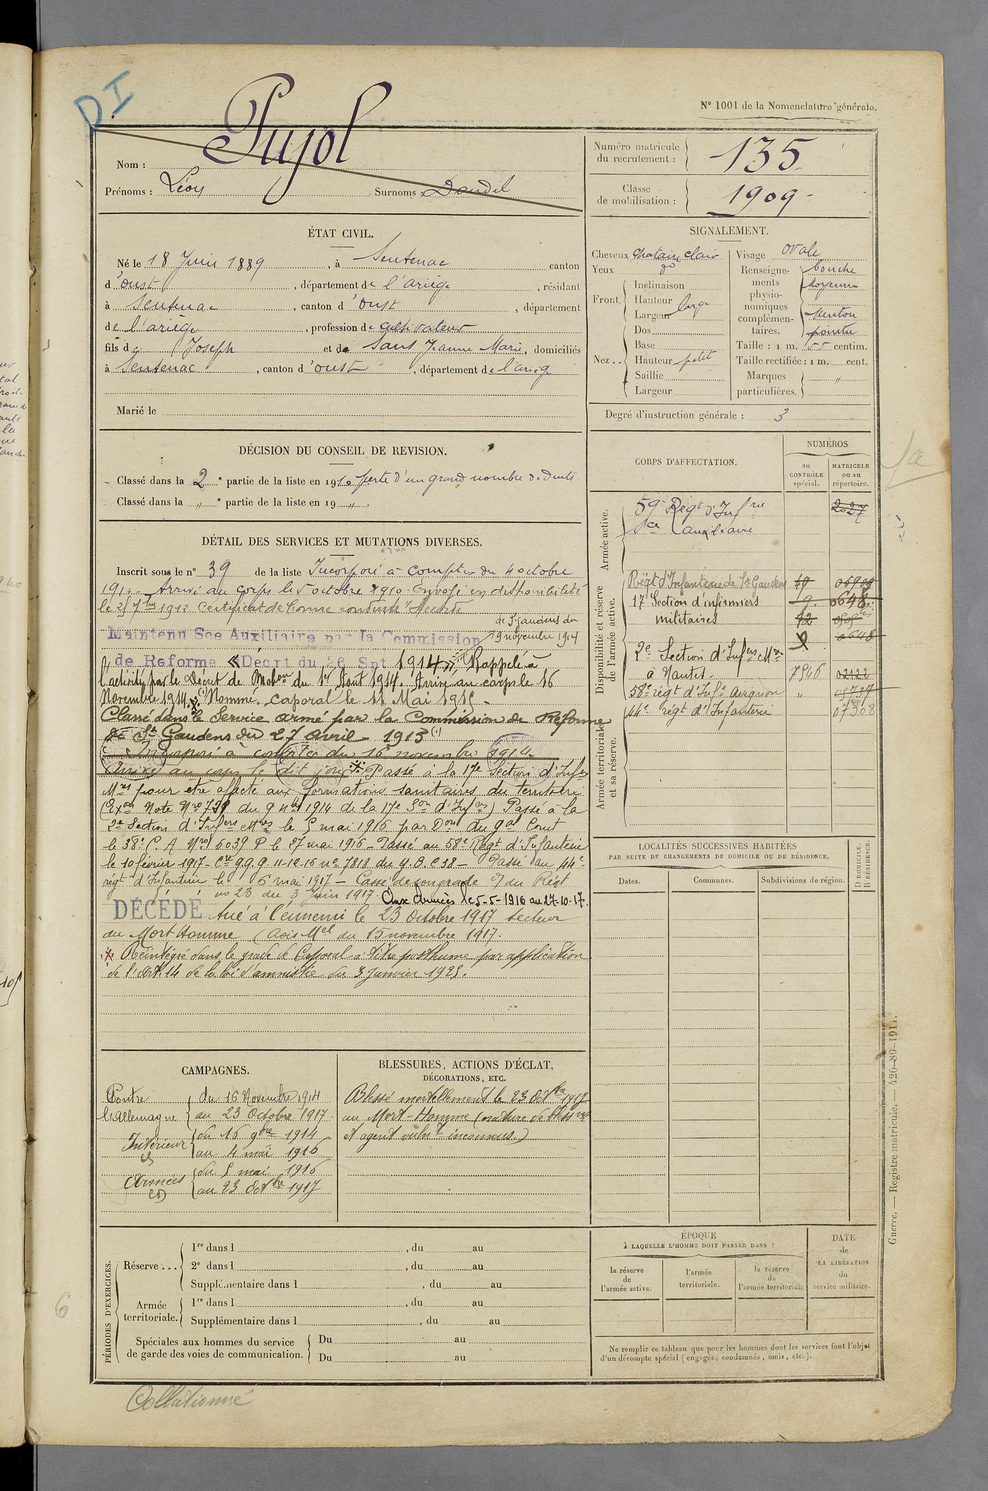 DI
N° 1001 de la Nomenclature générale.
Nom : Pujol
Prénoms : Léon Surnoms : Dandil
Numéro matricule du recrutement : 135
Classe de mobilisation : 1909
ÉTAT CIVIL.
Né le 18 Juin 1889, à Sentenac canton
d'oust, département de l'ariège, résidant
à Sentenac, canton d'oust, département
de l'ariège, profession de cultivateur
fils de Joseph et de Sans Jeanne Marie, domiciliés
à Sentenac, canton d'oust, département de l'ariège
Marié le
SIGNALEMENT.
Cheveux chatain clair
Yeux do
Front. Inclinaison
Hauteur
Largeur large
Nez.. Dos
Base
Hauteur petit
Saillie
Largeur
Visage ovale
Renseignements physionomiques complémentaires. bouche moyenne
menton pointu
Taille : 1 m. 55 centim.
Taille rectifiée : 1 m. cent.
Marques particulières. "
Degré d'instruction générale : 3
DÉCISION DU CONSEIL DE REVISION.
Classé dans la 2e partie de la liste en 1910 perte d'un grand nombre de dents
Classé dans la " e partie de la liste en 19 "
CORPS D'AFFECTATION.
NUMÉROS
au CONTRÔLE spécial.
MATRICULE ou au répertoire.
Armée active.
59e Régt d'Infrie 2027
Sce auxiliaire
Disponibilité et réserve de l'armée active.
Régt d'Infanterie de St Gaudens
17e Section d'infirmiers
militaires
2e Section d'Infers Mres
à Nantes 7546
58e régt d'Infie Avignon "
44e régt d'Infanterie
Armée territoriale et sa réserve.
DÉTAIL DES SERVICES ET MUTATIONS DIVERSES.
Inscrit sous le n° 39 de la liste Incorporé à compter du 4 octobre
1910. Arrivé au corps le 5 octobre 1910. Envoyé en disponibilité
le 25 7bre 1912. Certificat de bonne conduite "Accordé"
Maintenu Sce Auxiliaire par la Commission de St Gaudens du 19 novembre 1914
de Reforme « Décret du 26 Spt 1914 », Rappelé à
l'activité par le Décret de Mobon du 1er Août 1914. Arrivé au corps le 16
Novembre 1914. Nommé caporal le 11 Mai 1915.
Classé dans le Service armé par la Commission de Réforme
de St Gaudens du 27 Avril 1915
Incorporé à compter du 16 novembre 1914
Arrivé au corps le dit jour. Passé à la 17e Section d'Infers
Mres pour être affecté aux formations sanitaires du territoire
Passé à la
2e Section d'Infers Mres le 5 mai 1916
Passé au 58e Régt d'Infanterie
le 10 février 1917 Passé au 44e
régt d'Infanterie le 6 mai 1917 - Cassé de son grade du Régt
no 23 du 3 Juin 1917 Aux Armées le 5-5-1916 au 27-10-17.
DÉCÉDÉ tué à l'ennemi le 23 Octobre 1917 secteur
du Mort Homme (Avis Mel du 15 novembre 1917.
Réintégré dans le grade de Caporal à titre posthume par application
de l'art 14 de la loi d'amnistie du 3 janvier 1925.
LOCALITÉS SUCCESSIVES HABITÉES
PAR SUITE DE CHANGEMENTS DE DOMICILE OU DE RÉSIDENCE.
Dates. Communes. Subdivisions de région.
D DOMICILE. R RÉSIDENCE.
CAMPAGNES.
Contre l'Allemagne du 16 Novembre 1914
au 23 Octobre 1917.
Intérieur du 16 9bre 1914
au 4 mai 1916
Armées du 5 mai 1916
au 23 Octbre 1917
BLESSURES, ACTIONS D'ÉCLAT,
DÉCORATIONS, ETC.
Blessé mortellement le 23 Octbre 1917
au Mort-Homme (nature de blessure
et agent vulnt inconnus.)
PÉRIODES D'EXERCICES.
Réserve ... 1re dans l , du au
2e dans l , du au
Supplémentaire dans l , du au
Armée territoriale. 1re dans l , du au
Supplémentaire dans l , du au
Spéciales aux hommes du service de garde des voies de communication. Du au
Du au
ÉPOQUE
À LAQUELLE L'HOMME DOIT PASSER DANS :
la réserve de l'armée active.
l'armée territoriale.
la réserve de l'armée territoriale
DATE de LA LIBÉRATION du service militaire.
Ne remplir ce tableau que pour les hommes dont les services font l'objet
d'un décompte spécial (engagés, condamnés, omis, etc.).
Guerre. — Registre matricule. — 420-89-1911.
Collationné